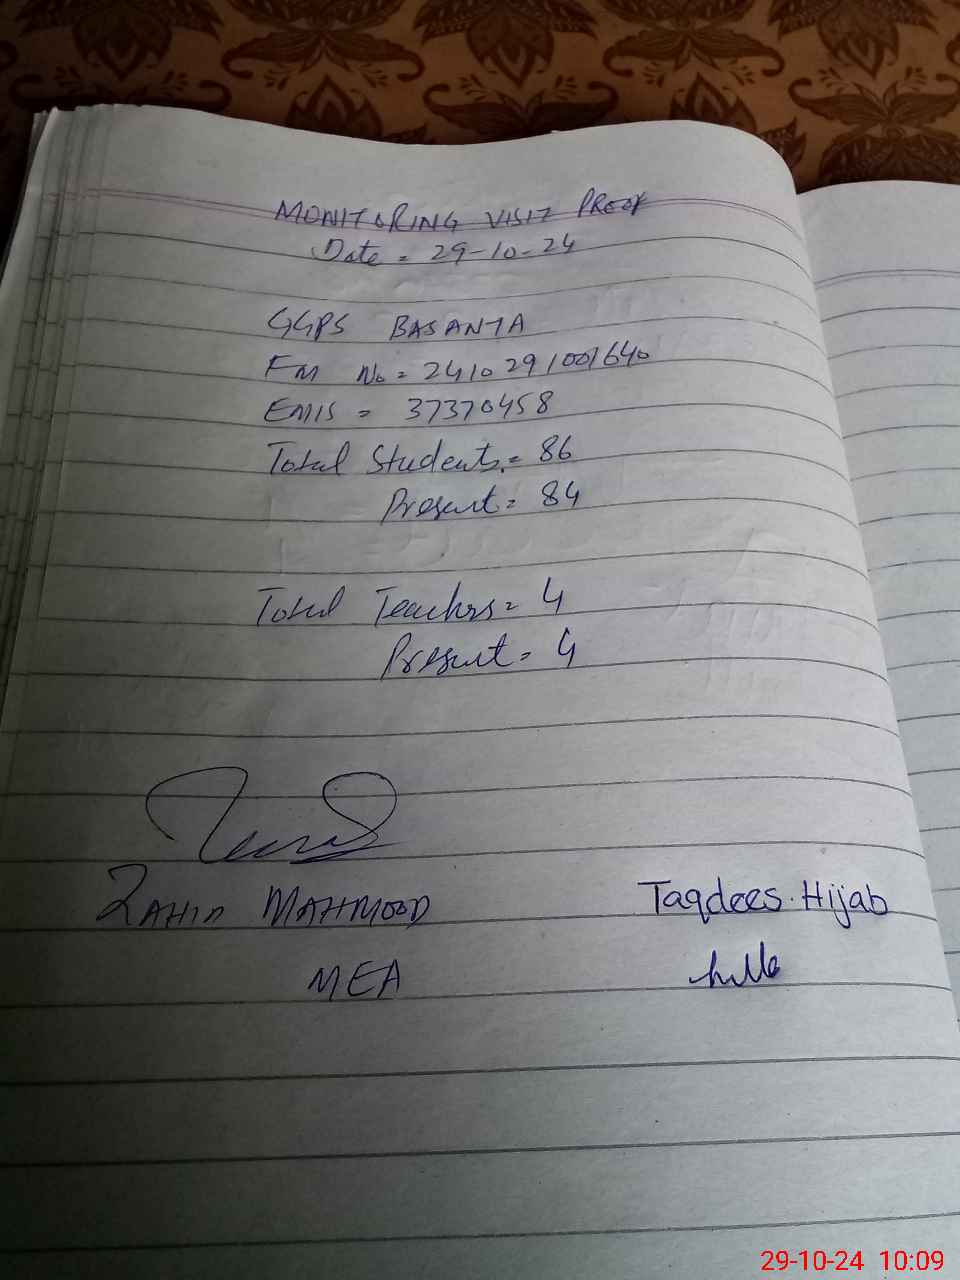 MONITORING VISIT PROOF
Date = 29-10-24
GGPS BASANTA
FM No = 2410291001640
EMIS = 37370458
Total Students = 86
Present = 84
Total Teachers = 4
Present = 4
ZAHID MAHMOOD
Taqdees. Hijab
MEA
29-10-24 10:09